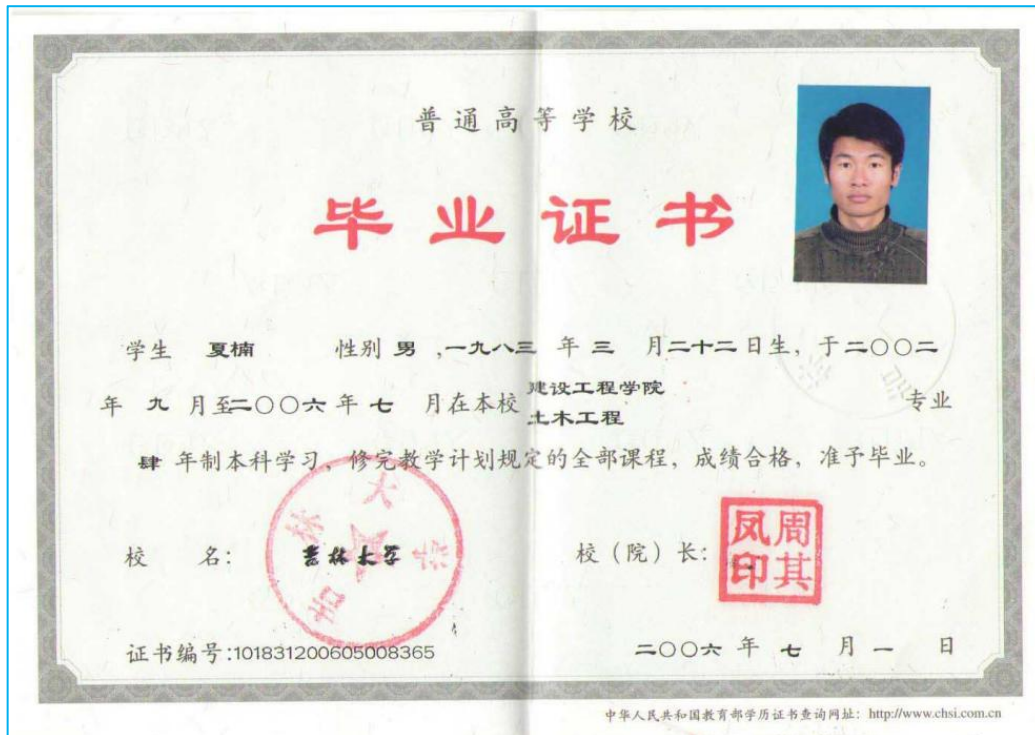 普通高等学校
毕业证书
学生 夏楠 性别 男 ,一九八三 年 三 月二十二日生，于二〇〇二
年 九 月至二〇〇六 年 七 月在本校 建设工程学院 土木工程 专业
肆 年制本科学习，修完教学计划规定的全部课程，成绩合格，准予毕业。
吉林大学
校 名：
校（院）长：
周其凤印
证书编号:101831200605008365
二〇〇六 年 七 月 一 日
中华人民共和国教育部学历证书查询网址：http://www.chsi.com.cn